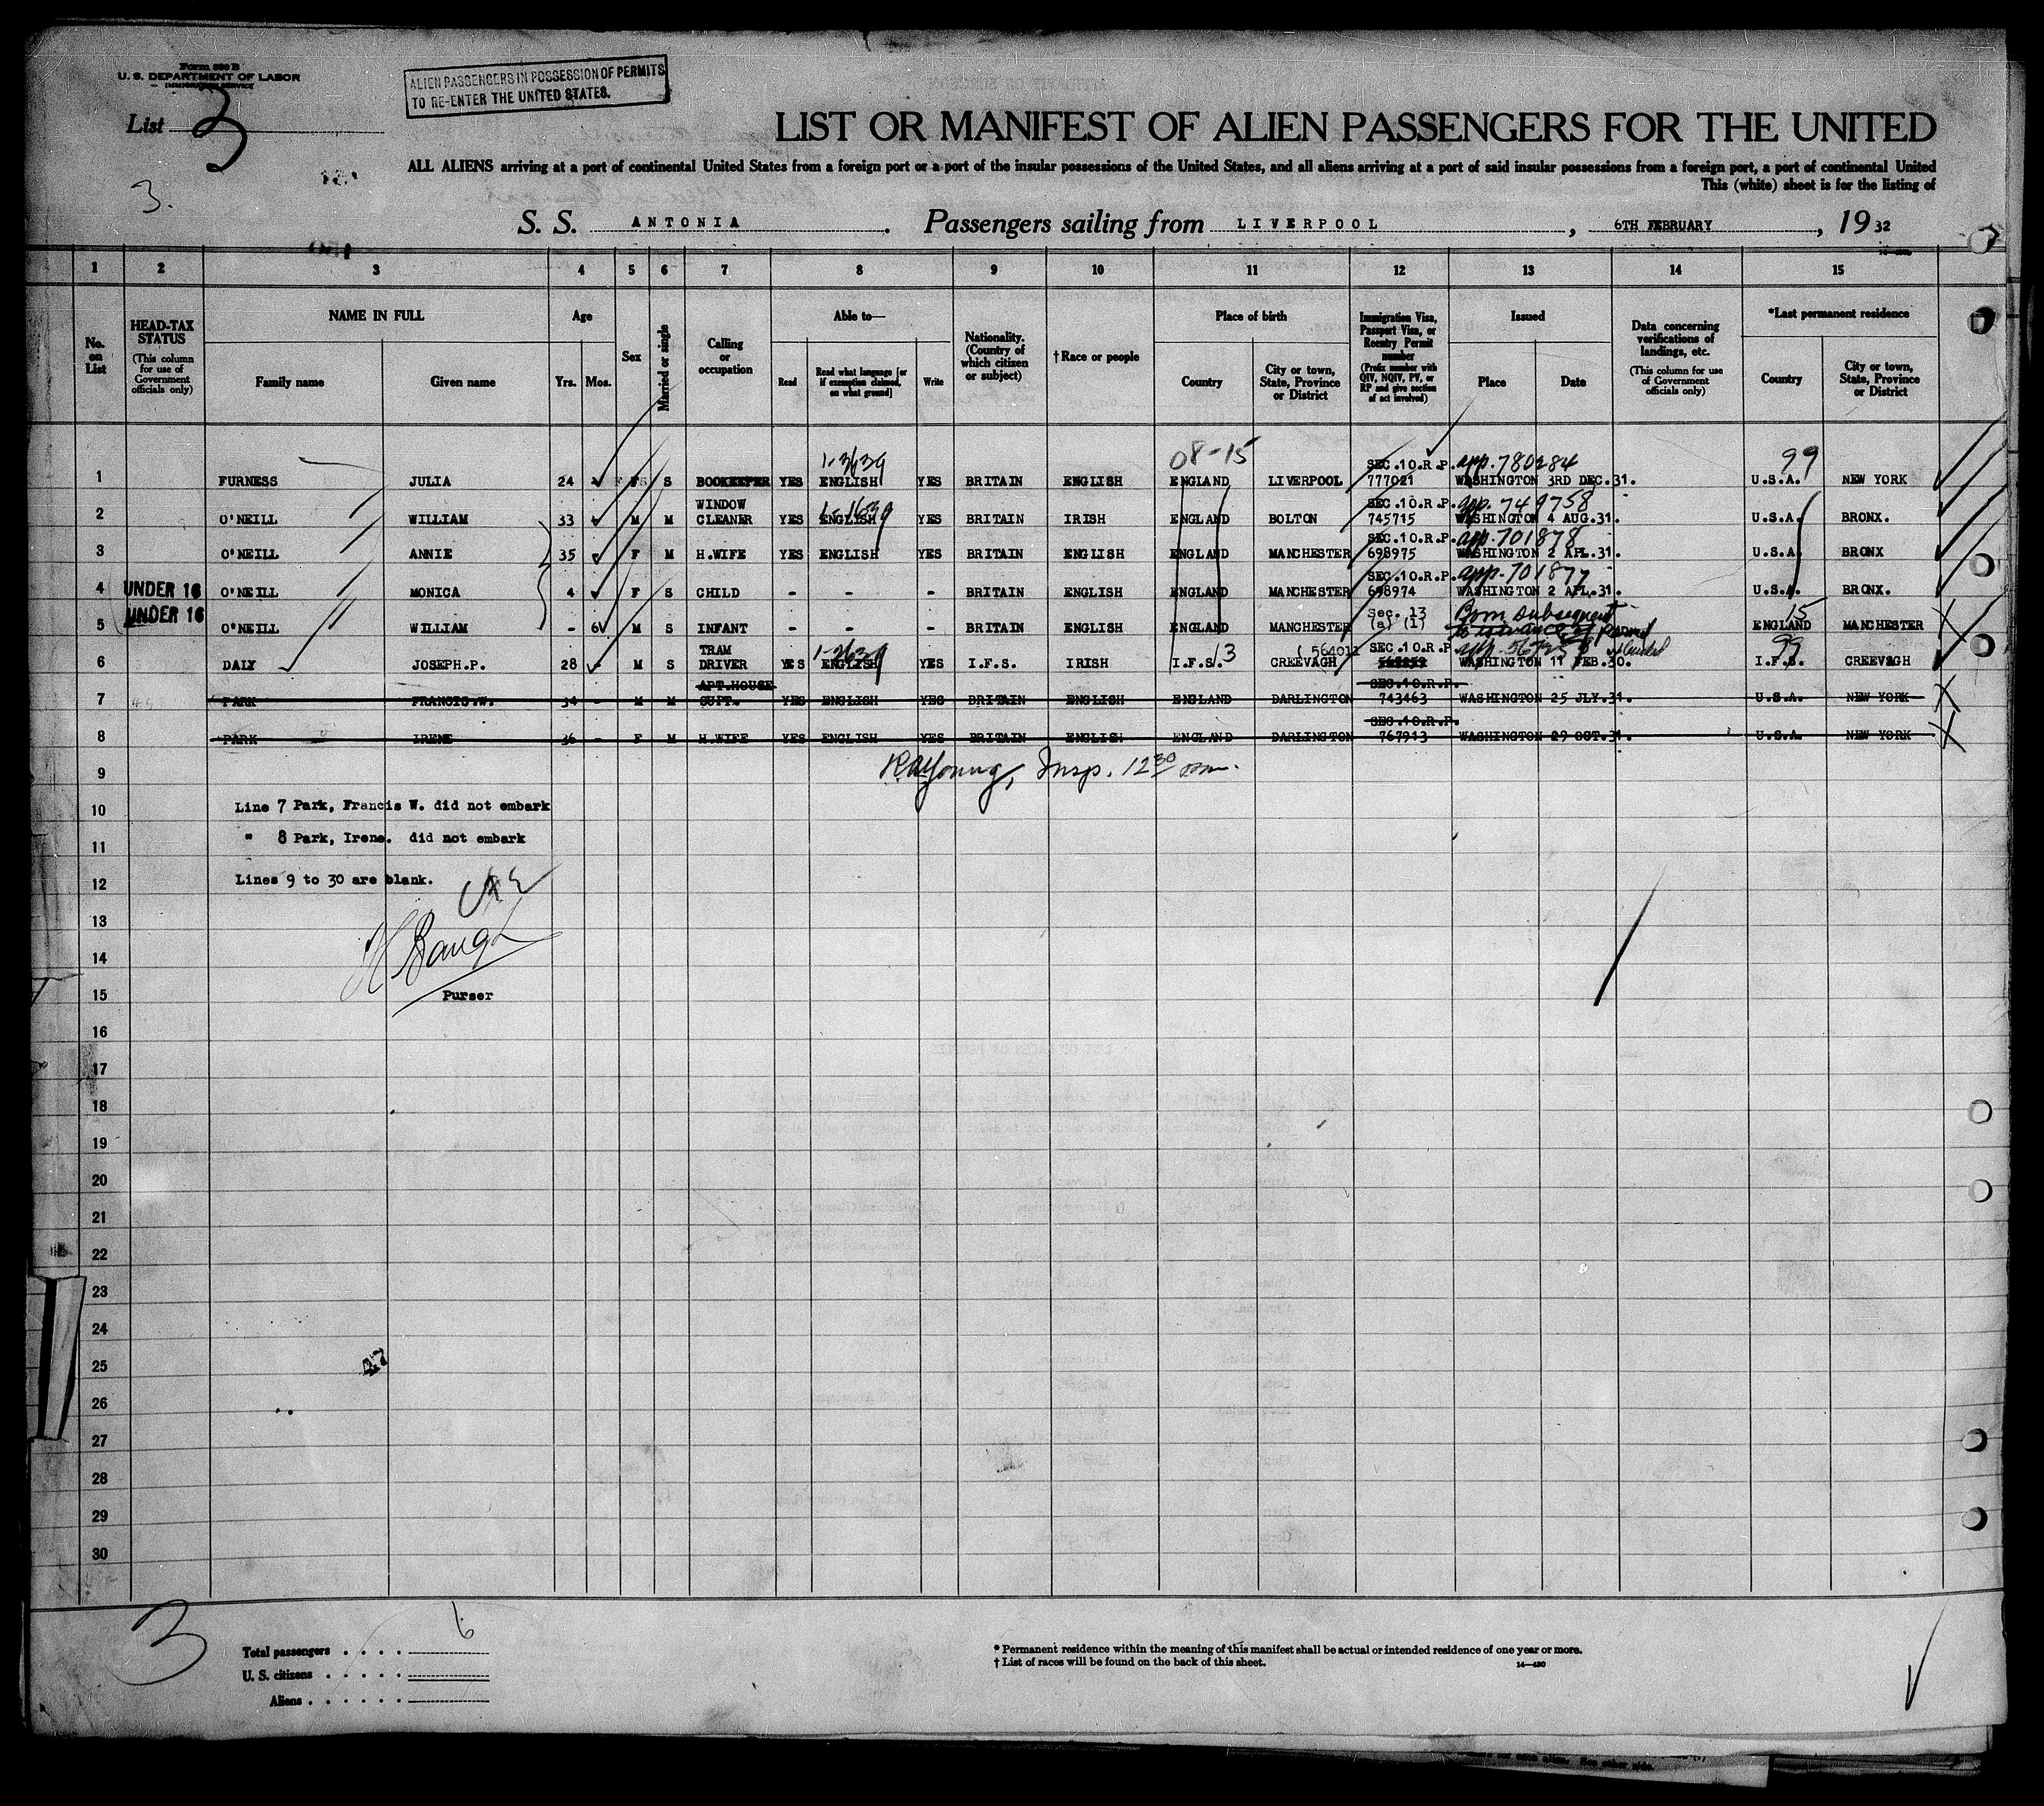 Form 500 B
U. S. DEPARTMENT OF LABOR
IMMIGRATION SERVICE
ALIEN PASSENGERS IN POSSESSION OF PERMITS
TO RE-ENTER THE UNITED STATES.
List 3
3.
LIST OR MANIFEST OF ALIEN PASSENGERS FOR THE UNITED
ALL ALIENS arriving at a port of continental United States from a foreign port or a port of the insular possessions of the United States, and all aliens arriving at a port of said insular possessions from a foreign port, a port of continental United
This (white) sheet is for the listing of
S. S. ANTONIA. Passengers sailing from LIVERPOOL, 6TH FEBRUARY, 1932
1 2 3 4 5 6 7 8 9 10 11 12 13 14 15
No. on List
HEAD-TAX STATUS (This column for use of Government officials only)
NAME IN FULL
Family name
Given name
Age
Yrs. Mos.
Sex
Married or single
Calling or occupation
Able to—
Read
Read what language [or if exemption claimed, on what ground]
Write
Nationality. (Country of which citizen or subject)
† Race or people
Place of birth
Country
City or town, State, Province or District
Immigration Visa, Passport Visa, or Reentry Permit number (Prefix number with QIV, NQIV, PV, or RP and give section of act involved)
Issued
Place
Date
Data concerning verifications of landings, etc. (This column for use of Government officials only)
*Last permanent residence
Country
City or town, State, Province or District
1-3639 08-15 SEC.10.R.P. app. 780284 99
1 FURNESS JULIA 24 F S BOOKKEEPER YES ENGLISH YES BRITAIN ENGLISH ENGLAND LIVERPOOL 777021 WASHINGTON 3RD DEC.31. U.S.A. NEW YORK
WINDOW 1-1639 SEC.10.R.P. app. 749758
2 O'NEILL WILLIAM 33 M M CLEANER YES ENGLISH YES BRITAIN IRISH ENGLAND BOLTON 745715 WASHINGTON 4 AUG.31. U.S.A. BRONX.
SEC.10.R.P. app. 701878
3 O'NEILL ANNIE 35 F M H.WIFE YES ENGLISH YES BRITAIN ENGLISH ENGLAND MANCHESTER 698975 WASHINGTON 2 APL.31. U.S.A. BRONX
SEC.10.R.P. app. 701877
4 UNDER 16 O'NEILL MONICA 4 F S CHILD - - - BRITAIN ENGLISH ENGLAND MANCHESTER 698974 WASHINGTON 2 APL.31. U.S.A. BRONX.
UNDER 16 Sec. 13 Born subsequent 15
5 O'NEILL WILLIAM - 6 M S INFANT - - - BRITAIN ENGLISH ENGLAND MANCHESTER (a) (1) to issuance of Permit ENGLAND MANCHESTER
TRAM 1-2639 564011 SEC.10.R.P. app. 99
6 DALY JOSEPH.P. 28 - M S DRIVER YES ENGLISH YES I.F.S. IRISH I.F.S. 13 CREEVAGH WASHINGTON 11 FEB.30. I.F.S. CREEVAGH
APT.HOUSE SEC.10.R.P.
7 PARK FRANCIS.W. 34 - M M SUPT. YES ENGLISH YES BRITAIN ENGLISH ENGLAND DARLINGTON 743463 WASHINGTON 25 JLY.31. U.S.A. NEW YORK
SEC.10.R.P.
8 PARK IRENE 36 - F M H.WIFE YES ENGLISH YES BRITAIN ENGLISH ENGLAND DARLINGTON 767913 WASHINGTON 29 OCT.31. U.S.A. NEW YORK
9 Young, Insp. 12 30
10 Line 7 Park, Francis W. did not embark
11 " 8 Park, Irene. did not embark
12 Lines 9 to 30 are blank.
13
14 H Baugh
15 Purser
16
17
18
19
20
21
22
23
24
25 47
26
27
28
29
30
3
6
Total passengers
U. S. citizens
Aliens
* Permanent residence within the meaning of this manifest shall be actual or intended residence of one year or more.
† List of races will be found on the back of this sheet.
14—430